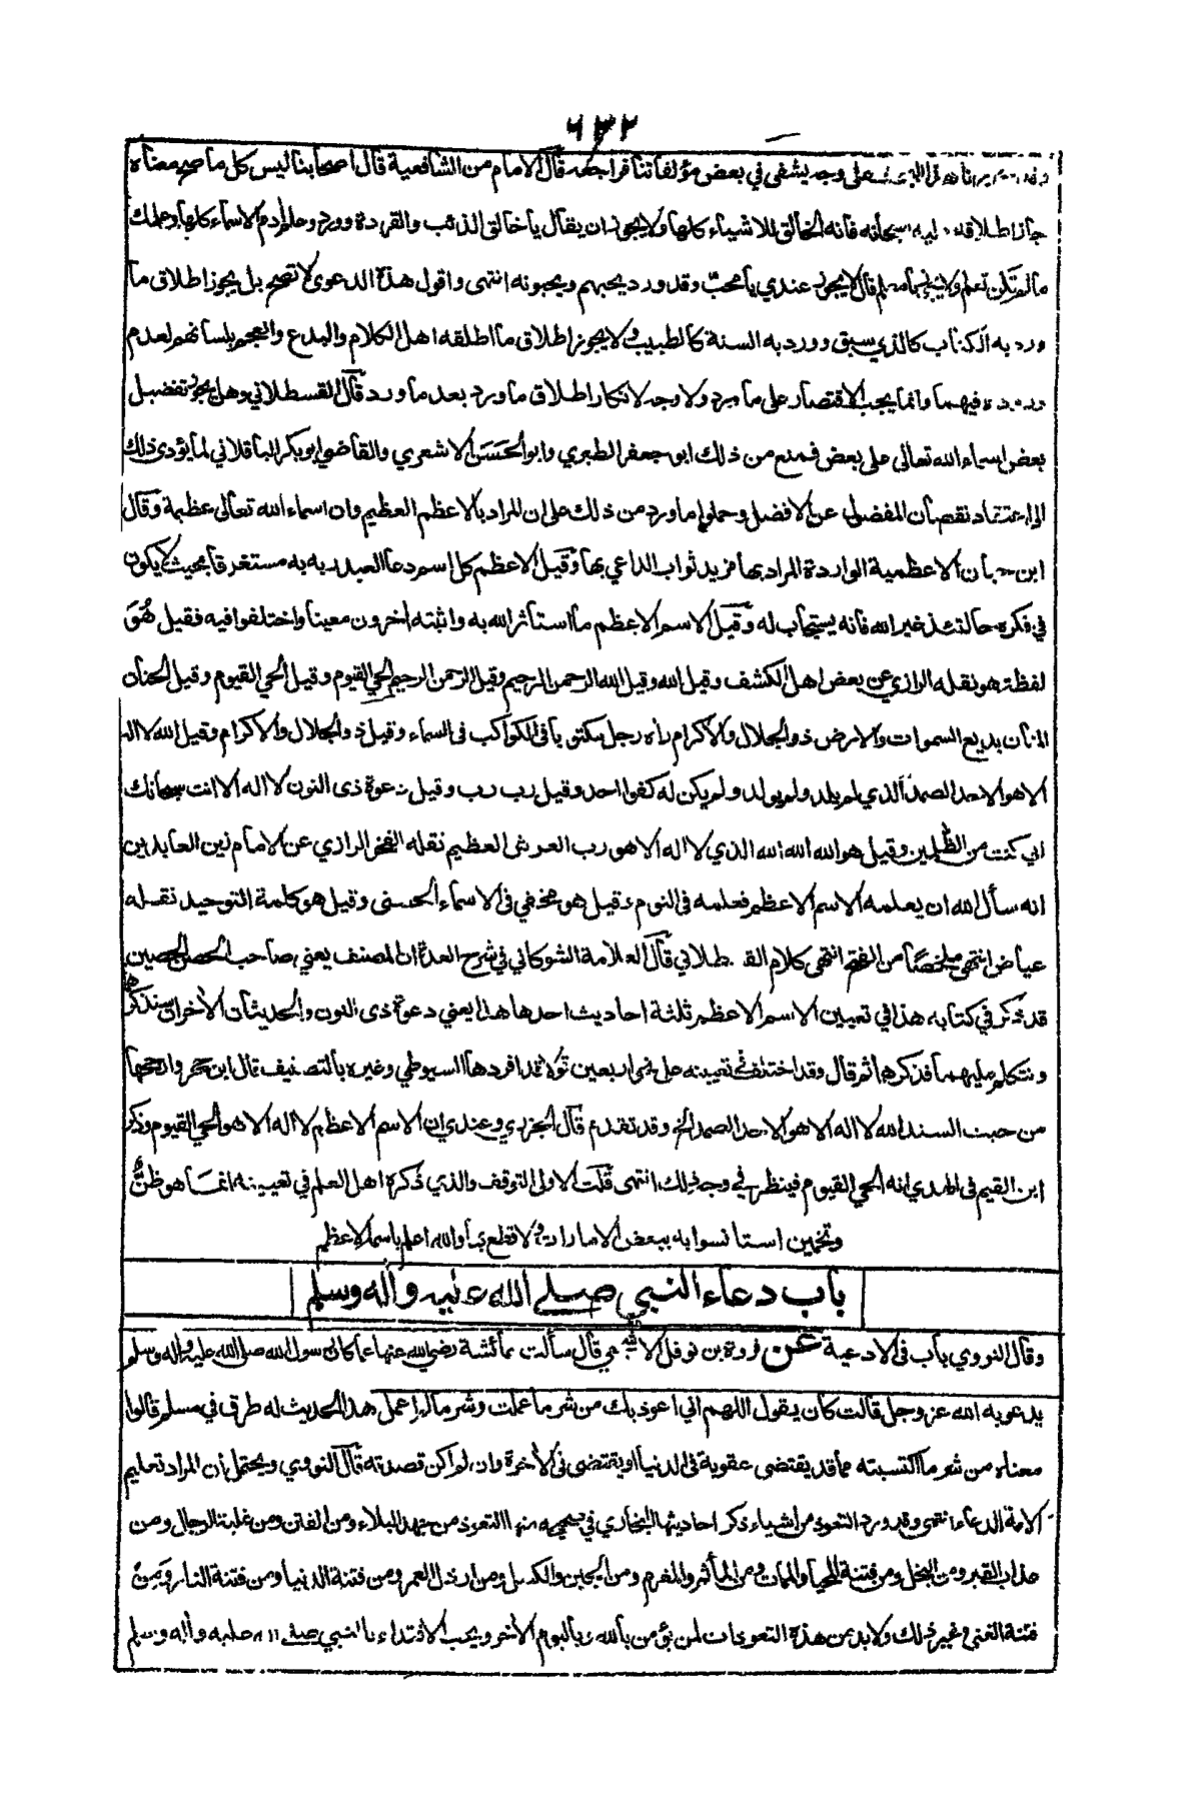 ٦٣٢
على وجه يشفي في بعض مؤلفاتنا فراجعه قال الامام من الشافعية قال اصحابنا ليس كل ما صح معناه
جاز اطلاقه عليه سبحانه فانه الخالق للاشياء كلها ولا يجوز ان يقال يا خالق الذئب والقردة وورد وعلم ادم الاسماء كلها وعلمك
ما لم تكن تعلم ولا يجوز يا معلم قال لا يجوز عندي يا محب وقد ورد يحبهم ويحبونه انتهى واقول هذه الدعوى لا تصح بل يجوز اطلاق ما
ورد به الكتاب كالذي سبق وورد به السنة كالطبيب ولا يجوز اطلاق ما اطلقه اهل الكلام والبدع والعجم بلسانهم لعدم
وروده فيهما وانما يجب الاقتصار على ما ورد ولا وجه لانكار اطلاق ما ورد بعد ما ورد قال القسطلاني وهل يجوز تفضيل
بعض اسماء الله تعالى على بعض فمنع من ذلك ابو جعفر الطبري وابو الحسن الاشعري والقاضي ابو بكر الباقلاني لما يؤدي ذلك
الى اعتقاد نقصان المفضول عن الافضل وحملوا ما ورد من ذلك على ان المراد بالاعظم العظيم وان اسماء الله تعالى عظيمة وقال
ابن حبان الاعظمية الواردة المراد بها مزيد ثواب الداعي بها وقيل الاعظم كل اسم دعا العبد ربه به مستغرقا بحيث لا يكون
في فكره حالتئذ غير الله فانه يستجاب له وقيل الاسم الاعظم ما استأثر الله به واثبته اخرون معينا واختلفوا فيه فقيل هو
لفظة هو نقله الرازي عن بعض اهل الكشف وقيل الله وقيل الله الرحمن الرحيم وقيل الرحمن الرحيم الحي القيوم وقيل الحي القيوم وقيل الحنان
المنان بديع السموات والارض ذو الجلال والاكرام راه رجل مكتوبا في الكواكب في السماء وقيل ذو الجلال والاكرام وقيل الله لا اله
الا هو الاحد الصمد الذي لم يلد ولم يولد ولم يكن له كفوا احد وقيل رب رب وقيل دعوة ذي النون لا اله الا انت سبحانك
اني كنت من الظلمين وقيل هو الله الله الله الذي لا اله الا هو رب العرش العظيم نقله الفخر الرازي عن الامام زين العابدين
انه سأل الله ان يعلمه الاسم الاعظم فعلمه في النوم وقيل هو مخفي في الاسماء الحسنى وقيل هو كلمة التوحيد نقله
عياض انتهى ملخصا من الفتح انتهى كلام القسطلاني قال العلامة الشوكاني في شرح العدة ان المصنف يعني صاحب الحصن الحصين
قد ذكر في كتابه هذا في تعيين الاسم الاعظم ثلثة احاديث احدها هذا يعني دعوة ذي النون والحديثان الأخران سنذكرهما
ونتكلم عليهما فذكرها ثم قال وقد اختلف في تعيينه على نحو اربعين قولا قد افردها السيوطي وغيره بالتصنيف قال ابن حجر وارجحها
من حيث السند الله لا اله الا هو الاحد الصمد الخ وقد تقدم قال الجزري وعندي ان الاسم الاعظم لا اله الا هو الحي القيوم وذكر
ابن القيم في الهدي انه الحي القيوم فينظر في وجه ذلك انتهى قلت الاولى التوقف والذي ذكره اهل العلم في تعيينه انما هو ظن
وتخمين استانسوا به ببعض الامارات ولا قطع بها والله اعلم باسمه الاعظم
باب دعاء النبي صلى الله عليه واله وسلم
وقال النووي باب في الادعية عن فروة بن نوفل الاشجعي قال سألت عائشة رضي الله عنها عما كان رسول الله صلى الله عليه واله وسلم
يدعو به الله عز وجل قالت كان يقول اللهم اني اعوذ بك من شر ما عملت وشر ما لم اعمل هذا الحديث له طرق في مسلم قالوا
معناه من شر ما اكتسبته مما قد يقتضى عقوبة في الدنيا او يقتضى في الأخرة وان لم اكن قصدته قال النووي ويحتمل ان المراد تعليم
الامة الدعاء انتهى وقد ورد التعوذ من اشياء ذكر احاديثها البخاري في صحيحه منها التعوذ من جهد البلاء ومن الفتن ومن غلبة الرجال ومن
عذاب القبر ومن البخل ومن فتنة المحيا والممات ومن المأثم والمغرم ومن الجبن والكسل ومن ارذل العمر ومن فتنة الدنيا ومن فتنة النار ومن
فتنة الغنى وغير ذلك ولا بد من هذه التعوذات لمن يؤمن بالله وباليوم الأخر ويحب الاقتداء بالنبي صلى الله عليه واله وسلم